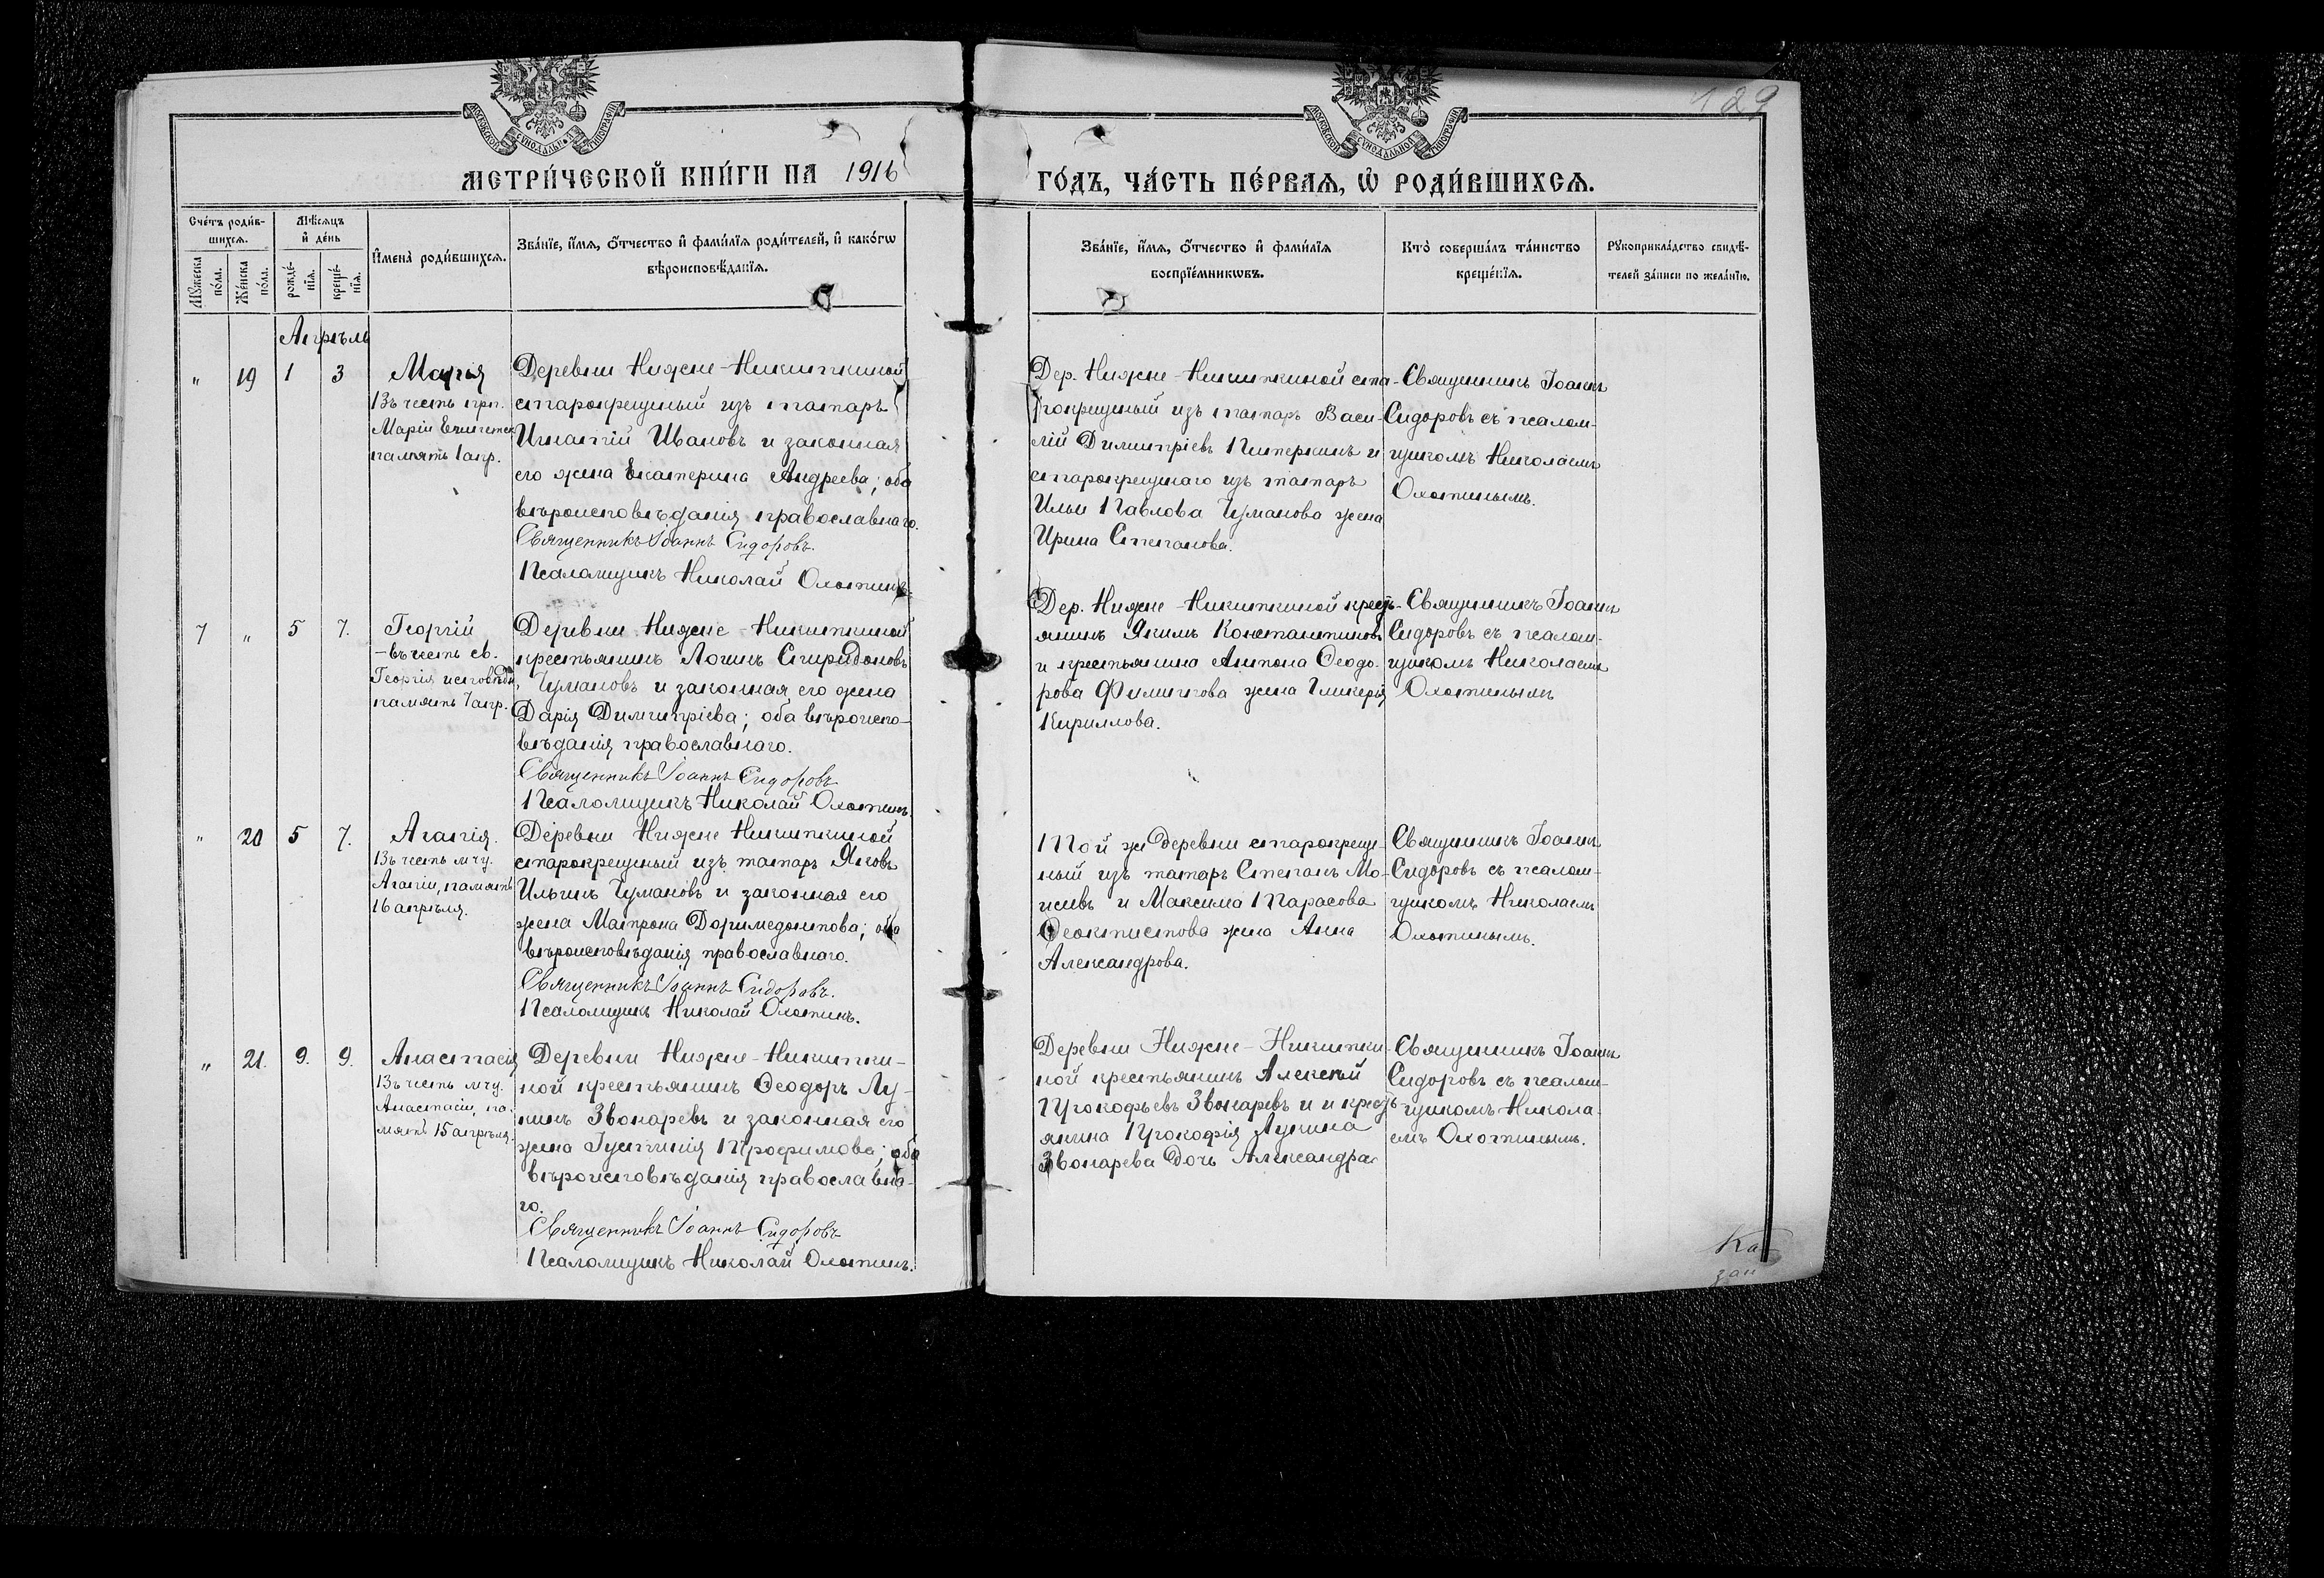 129
МОСКОВСКОЙ СИНОДАЛЬНОЙ ТИПОГРАФІИ
МОСКОВСКОЙ СИНОДАЛЬНОЙ ТИПОГРАФІИ
МЕТРИ́ЧЕСКОЙ КНИ́ГИ НА 1916
ГО́ДЪ, ЧА́СТЬ ПЕ́РВАѦ, Ѡ РОДИ́ВШИХСѦ.
Сче́тъ роди́в-
шихсѧ.
Мѣ́сѧцъ
и҆ де́нь
Мꙋ́жеска
по́ла.
Же́нска
по́ла.
рожде́-
нїѧ.
креще́-
нїѧ.
И҆мена̀ роди́вшихсѧ.
Зва́нїе, и҆́мѧ, ѻ҆́тчество и҆ фами́лїѧ роди́телей, и҆ како́гѡ
вѣроисповѣ́данїѧ.
Зва́нїе, и҆́мѧ, ѻ҆́тчество и҆ фами́лїѧ
воспрїе́мникѡвъ.
Кто̀ соверша́лъ та́инство
креще́нїѧ.
Рꙋкоприкла́дство свидѣ́-
телей за́писи по жела́нїю.
Апрѣль
" 19 1 3
Марія
Въ честь прп.
Маріи Египетск
память 1 апр.
Деревни Нижне-Никиткиной
старокрещеный изъ татаръ
Игнатій Ивановъ и законная
его жена Екатерина Андреева; оба
вѣроисповѣданія православнаго.
Священникъ Іоаннъ Сидоровъ.
Псаломщикъ Николай Охотинъ.
Дер. Нижне-Никиткиной ста-
рокрещеный изъ татаръ Васи-
лій Димитріевъ Питеркинъ и
старокрещенаго изъ татаръ
Ильи Павлова Чуманова жена
Ирина Степанова.
Священникъ Іоаннъ
Сидоровъ съ псалом-
щикомъ Николаемъ
Охотинымъ.
7 " 5 7.
Георгій
-въ честь св.
Георгія исповѣдн,
память 7 апр.
Деревни Нижне-Никиткиной
крестьянинъ Логинъ Спиридоновъ
Чумановъ и законная его жена
Дарія Димитріева; оба вѣроиспо-
вѣданія православнаго.
Священникъ Іоаннъ Сидоровъ
Псаломщикъ Николай Охотинъ.
Дер. Нижне-Никиткиной кресть-
янинъ Якимъ Константиновъ
и крестьянина Антона Ѳеодо-
рова жена Гликерія
Кириллова.
Священникъ Іоаннъ
Сидоровъ съ псалом-
щикомъ Николаемъ
Охотинымъ
" 20 5 7.
Агапія.
Въ честь мчц.
Агапіи, память
16 апрѣля.
Деревни Нижне Никиткиной
старокрещеный изъ татаръ Яковъ
Ильинъ Чумановъ и законная его
жена Матрона Доримедонтова; оба
вѣроисповѣданія православнаго.
Священникъ Іоаннъ Сидоровъ.
Псаломщикъ Николай Охотинъ.
Той же деревни старокреще-
ный изъ татаръ Степанъ Мо-
исеевъ и Максима Тарасова
Ѳеоктистова жена Анна
Александрова.
Священникъ Іоаннъ
Сидоровъ съ псалом-
щикомъ Николаемъ
Охотинымъ.
" 21. 9. 9.
Анастасія
Въ честь мчц.
Анастасіи, па-
мять 15 апрѣля.
Деревни Нижне-Никитки-
ной крестьянинъ Ѳеодоръ Лу-
кинъ Звонаревъ и законная его
жена Іустинія Трофимова; оба
вѣроисповѣданія православна-
го.
Священникъ Іоаннъ Сидоровъ
Псаломщикъ Николай Охотинъ.
Деревни Нижне-Никитки-
ной крестьянинъ Алексѣй
Прокофьевъ Звонаревъ и и кресть-
янина Прокофія Лукина
Звонарева дочь Александра
Священникъ Іоаннъ
Сидоровъ съ псалом-
щикомъ Никола-
емъ Охотинымъ.
Ка-
зан